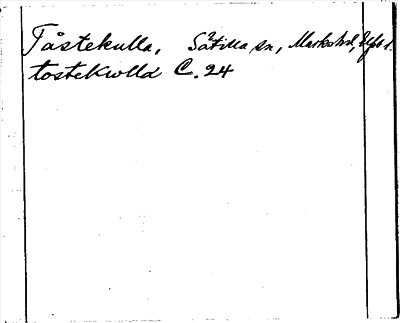 Tåstekulla, Sätilla sn, Marks hd, Älfsb. l.
tostekwlla C. 24